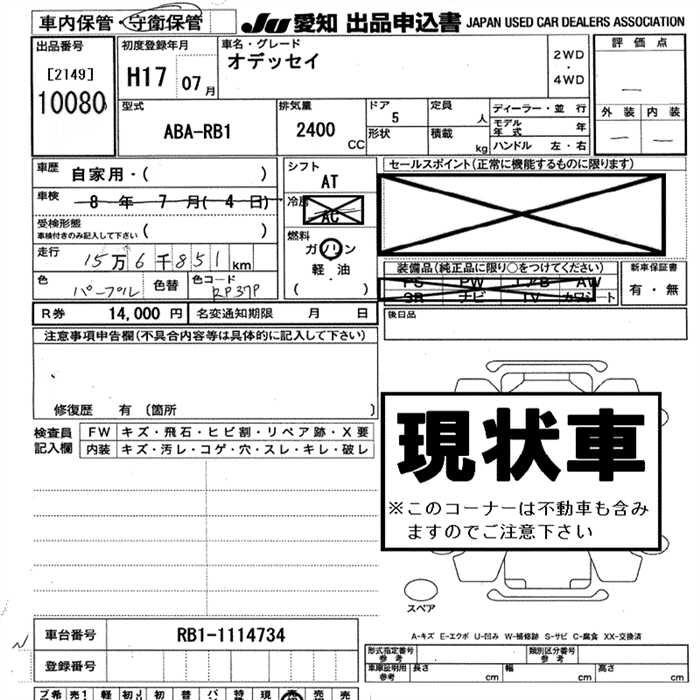 車内保管・守衛保管
JU 愛知 出品申込書 JAPAN USED CAR DEALERS ASSOCIATION
出品番号
[2149]
10080
初度登録年月
H17 07月
車名・グレード
オデッセイ
2WD
・
4WD
評価点
—
外装 内装
— —
型式
ABA-RB1
排気量
2400
CC
ドア
5
形状
定員
人
積載
kg
ディーラー・並行
モデル年式 年
ハンドル 左・右
車歴
自家用・( )
車検
8年7月(4日)
受検形態
車検付きのみ記入して下さい ( )
走行
15万6千851km
色
パープル
色替
色コード
RP37P
シフト
AT
冷房
AC
燃料
ガソリン
軽・油
( )
セールスポイント(正常に機能するものに限ります)
装備品(純正品に限り○をつけてください)
PS PW エアB AW
SR ナビ TV カワシート
新車保証書
有・無
R券 14,000円
名変通知期限 月 日
後日品
注意事項申告欄(不具合内容等は具体的に記入して下さい)
修復歴 有〔箇所 〕
検査員記入欄
FW キズ・飛石・ヒビ割・リペア跡・X要
内装 キズ・汚レ・コゲ・穴・スレ・キレ・破レ
現状車
※このコーナーは不動車も含み
ますのでご注意下さい
スペア
A-キズ E-エクボ U-凹み W-補修跡 S-サビ C-腐食 XX-交換済
車台番号 RB1-1114734
登録番号
形式指定番号
参考
類別区分番号
参考
車庫証明用
参考
長さ cm 幅 cm 高さ cm